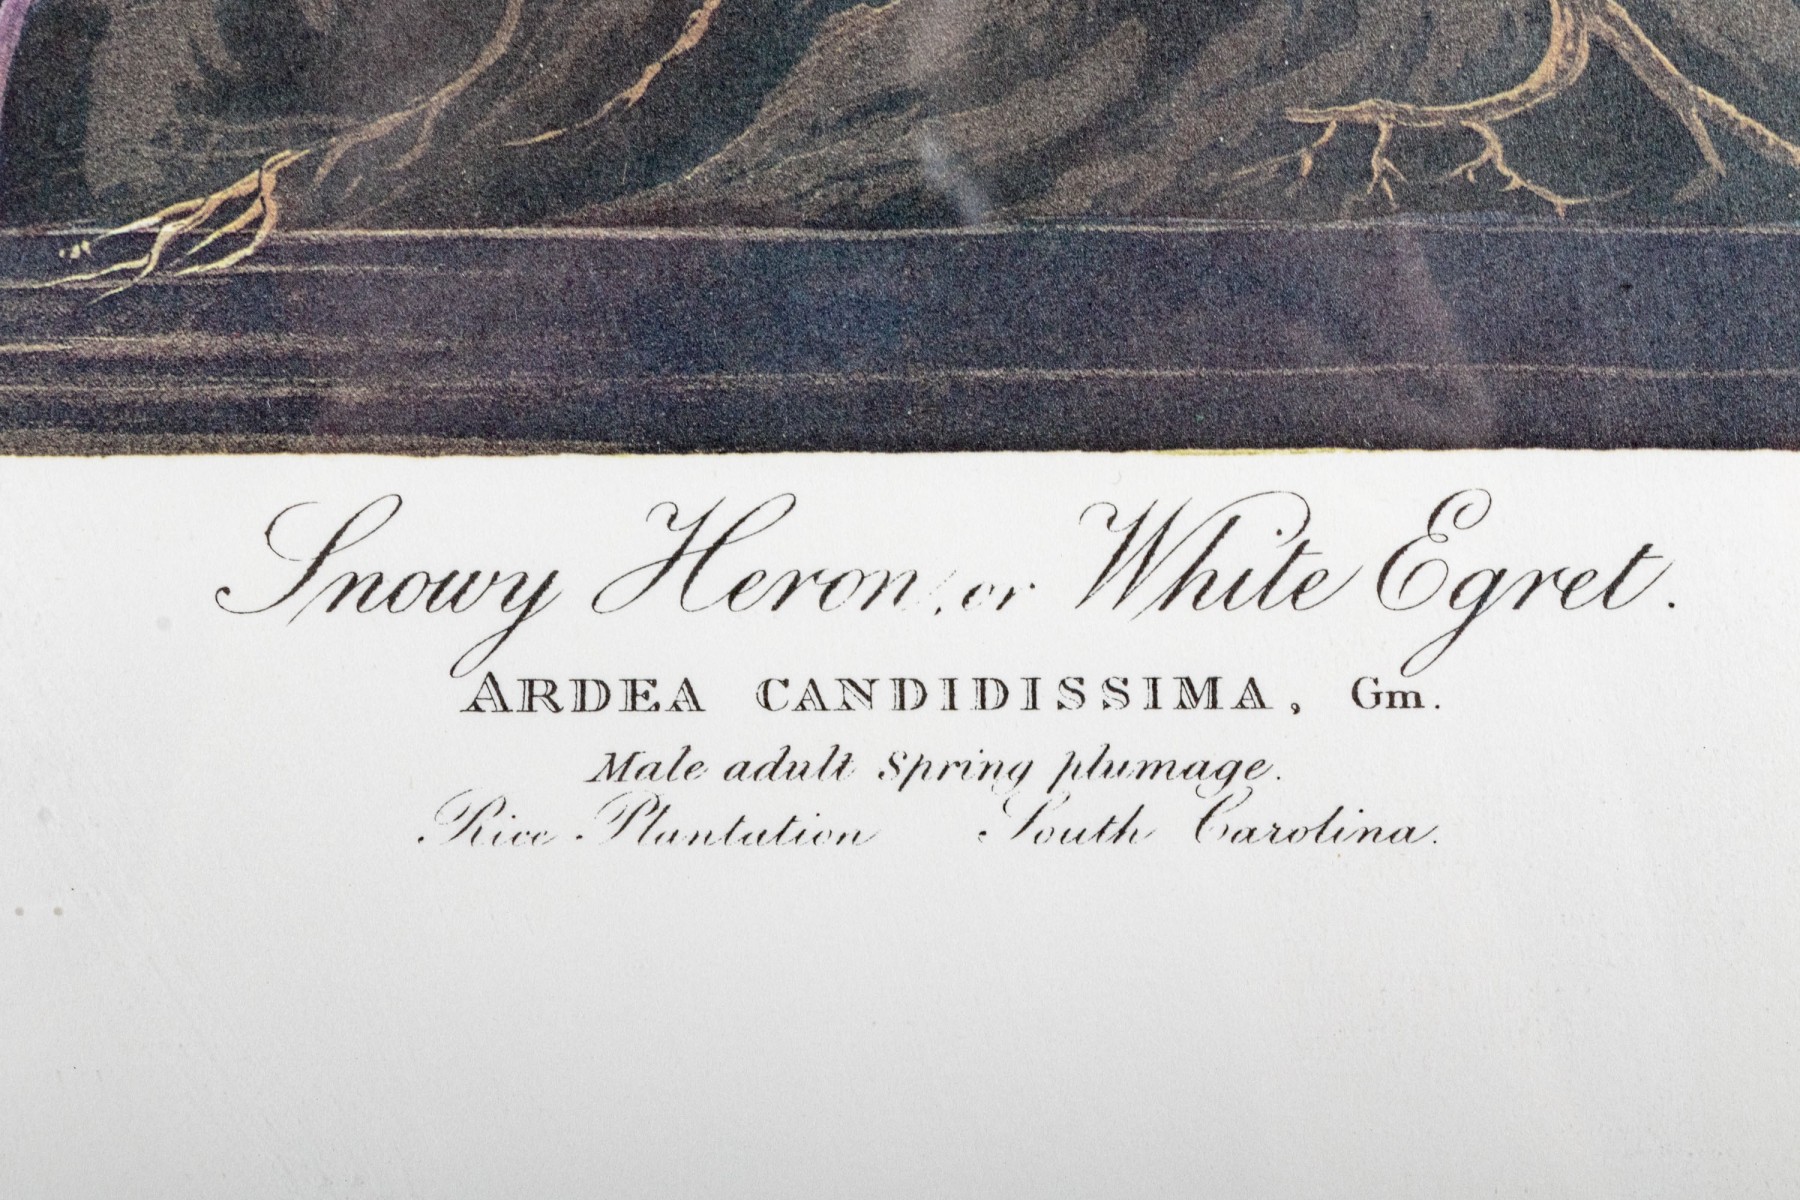 Snowy Heron, or White Egret.
ARDEA CANDIDISSIMA, Gm.
Male adult Spring plumage.
Rice Plantation South Carolina.